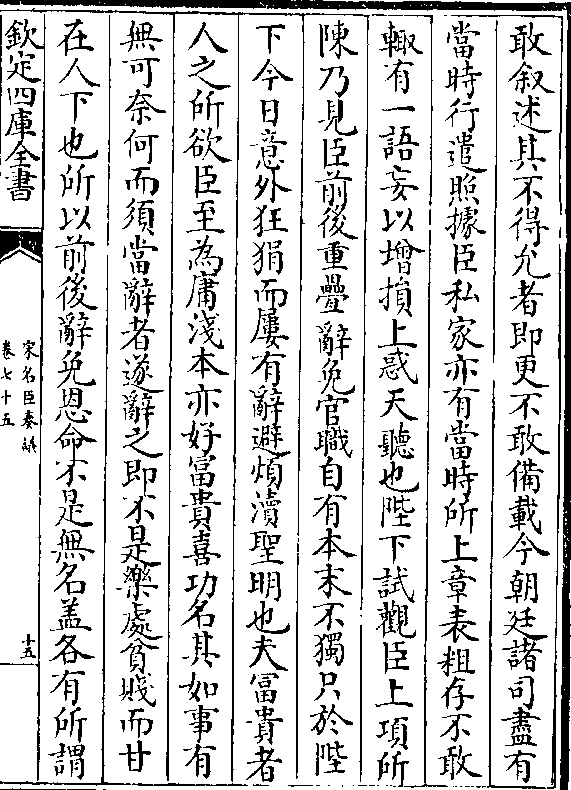 敢叙述其不得允者即更不敢備載今朝廷諸司盡有
當時行遣照據臣私家亦有當時所上章表粗存不敢
輙有一語妄以增損上惑天聽也陛下試觀臣上項所
陳乃見臣前後重疊辭免官職自有本末不獨只於陛
下今日意外狂狷而屢有辭避煩瀆聖明也夫富貴者
人之所欲臣至為庸淺本亦好富貴喜功名其如事有
無可奈何而須當辭者遂辭之即不是樂處貧賤而甘
在人下也所以前後辭免恩命不是無名盖各有所謂
欽定四庫全書
宋名臣奏議
卷七十五
十五